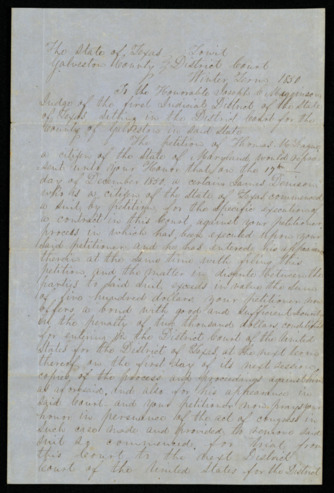 The State of Texas, Towit
Galveston County District Court
Winter Term, 1850
To the Honorable Joseph C. Megginson
Judge of the first Judicial District of the State
of Texas sitting in the District Court for the
County of Galveston in said State
The petition of Thomas M.
a citizen of the State of Maryland would
unto your Honor that on the 17th
day of December 1850 a certain James Denison
who is a citizen of the State of Texas commenced
a suit by petition for the specific execution of
a contract in this Court against your petitioner
process in which has been executed upon your
said petitioner and he has entered his appearance
thereto at the same time with filing this
petition, and the matter in dispute between the
partys to said suit, exceeds in value the sum
of five hundred dollars your petitioner now
offers a bond with good and sufficient
in the penalty of two thousand dollars conditioned
for entering in the District Court of the United
States for the District of Texas, at the next term
thereof on the first day of its next session
copies of the process and proceedings against him
as aforesaid, and also for his appearance in
said Court and your petitioner now prays your
honor in persuance of the act of congress in
such case made and provided to remove this
suit so commenced, for trial, from
this Court to the next District
Court of the United States for the District